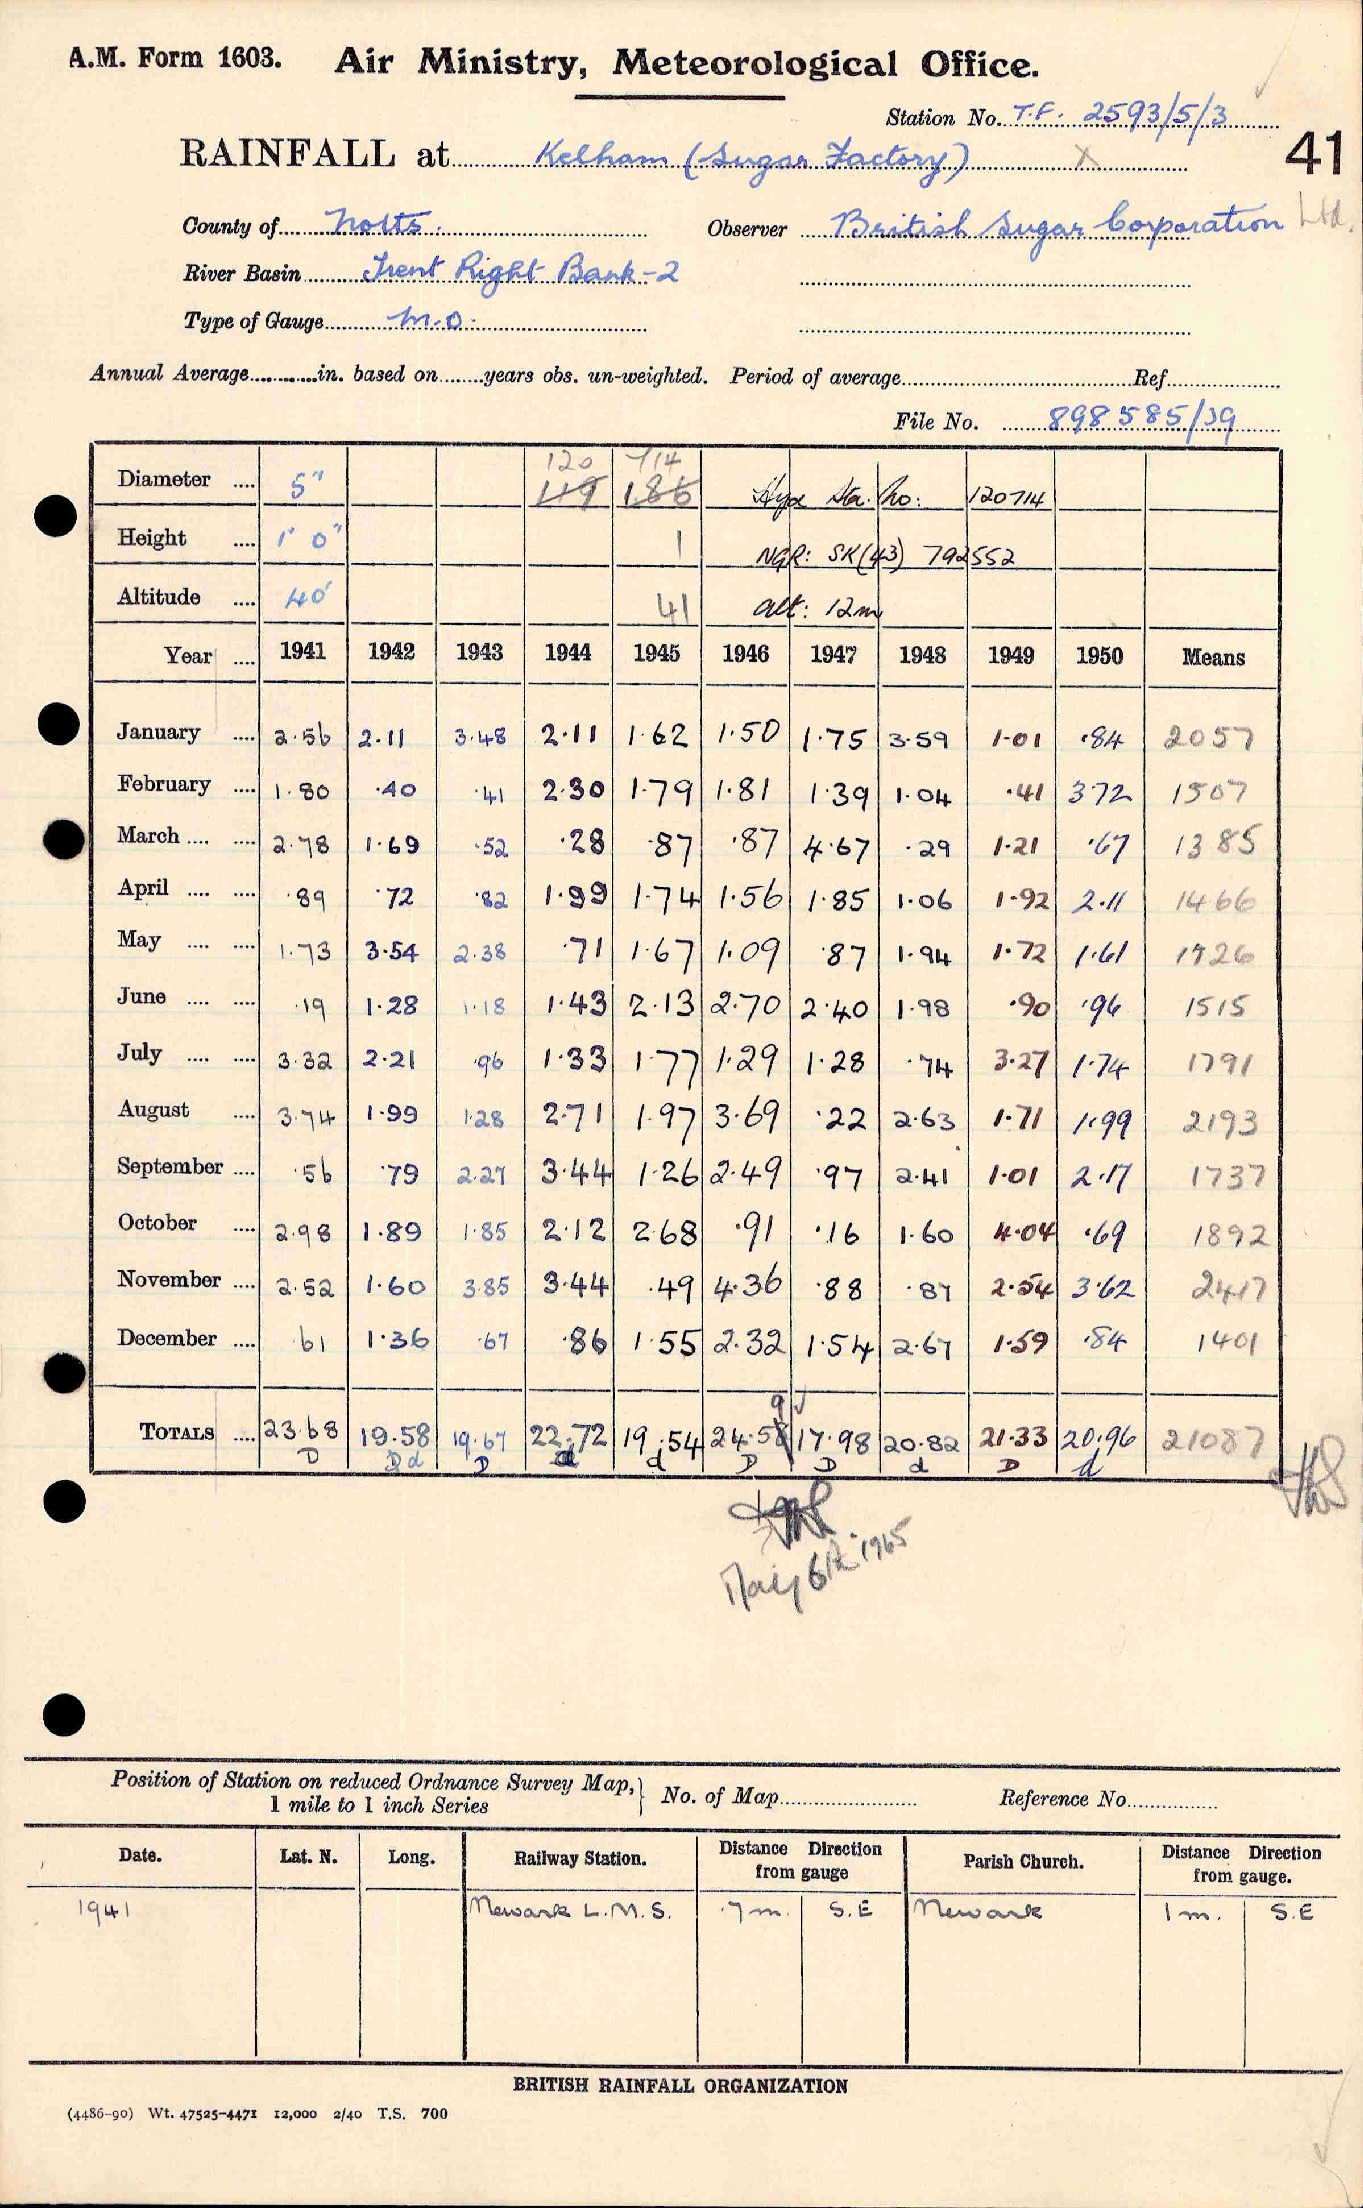 A.M. Form 1603. Air Ministry, Meteorological Office.
Station No. T.F. 2593/5/3
RAINFALL at Kelham (Sugar Factory) X 41
County of Notts. Observer British Sugar Corporation Ltd.
River Basin Trent Right Bank-2
Type of Gauge M.O.
Annual Average............in. based on........years obs. un-weighted. Period of average........Ref........
File No. 898585/39
120 714
Diameter .... 5" 119 186 Hyd Sta. No: 120714
Height .... 1' 0" 1 NGR: SK(43) 792552
Altitude .... 40' 41 alt: 12m
Year .... 1941 1942 1943 1944 1945 1946 1947 1948 1949 1950 Means
January .... 2.56 2.11 3.48 2.11 1.62 1.50 1.75 3.59 1.01 .84 2057
February .... 1.80 .40 .41 2.30 1.79 1.81 1.39 1.04 .41 3.72 1507
March .... .... 2.78 1.69 .52 .28 .87 .87 4.67 .29 1.21 .67 1385
April .... .... .89 .72 .82 1.99 1.74 1.56 1.85 1.06 1.92 2.11 1466
May .... .... 1.73 3.54 2.38 .71 1.67 1.09 .87 1.94 1.72 1.61 1726
June .... .... .19 1.28 1.18 1.43 2.13 2.70 2.40 1.98 .90 .96 1515
July .... .... 3.32 2.21 .96 1.33 1.77 1.29 1.28 .74 3.27 1.74 1791
August .... 3.74 1.99 1.28 2.71 1.97 3.69 .22 2.63 1.71 1.99 2193
September .... .56 .79 2.27 3.44 1.26 2.49 .97 2.41 1.01 2.17 1737
October .... 2.98 1.89 1.85 2.12 2.68 .91 .16 1.60 4.04 .69 1892
November .... 2.52 1.60 3.85 3.44 .49 4.36 .88 .87 2.54 3.62 2417
December .... .61 1.36 .67 .86 1.55 2.32 1.54 2.67 1.59 .84 1401
9 ✓
TOTALS .... 23.68 19.58 19.67 22.72 19.54 24.58 17.98 20.82 21.33 20.96 21087
D D d D d d D D d D d
May 6th 1965
Position of Station on reduced Ordnance Survey Map, } No. of Map........ Reference No........
1 mile to 1 inch Series
Date. Lat. N. Long. Railway Station. Distance Direction from gauge Parish Church. Distance Direction from gauge.
1941 Newark L.M.S. .7m. S.E Newark 1m. S.E
BRITISH RAINFALL ORGANIZATION
(4486-90) Wt. 47525-4471 12,000 2/40 T.S. 700